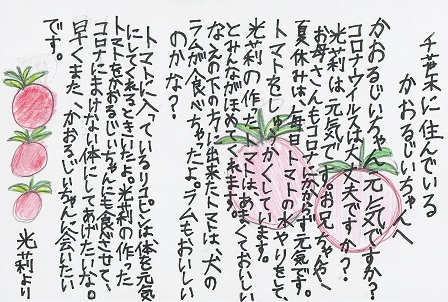 千葉に住んでいる
かおるじいちゃんへ
かおるじいちゃん元気ですか？
コロナウイルスは大丈夫ですか？
光莉は、元気です。お兄ちゃんや、
お母さんもコロナにかからず元気です。
夏休みは、毎日トマトの水やりをして、
トマトをしゅうかくしています。
光莉の作ったトマトはあまくておいしい
とみんながほめてくれます。
なえの下の方に出来たトマトは、犬の
ラムが食べちゃったよ。ラムもおいしい
のかな？
トマトに入っているリコピンは体を元気
にしてくれるときいたよ。光莉の作った
トマトをかおるじいちゃんにも食べさせて、
コロナにまけない体にしてあげたいな。
早くまた、かおるじいちゃんに会いたい
です。
光莉より